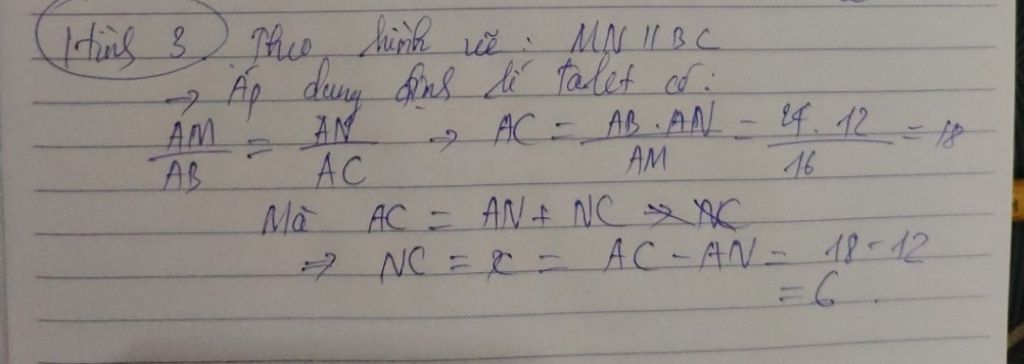 Hình 3. Theo hình vẽ: MN // BC
→ Áp dụng định lí talet có:
AM/AB = AN/AC → AC = AB.AN/AM = 24.12/16 = 18
Mà AC = AN + NC
⇒ NC = x = AC - AN = 18 - 12
= 6.